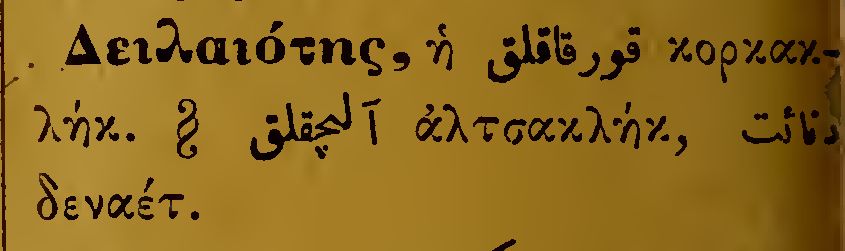 Δειλαιότης, ἡ قورقاقلق κορκακ-
λήκ. § آلچقلق ἀλτσακλήκ, دنائت
δεναέτ.